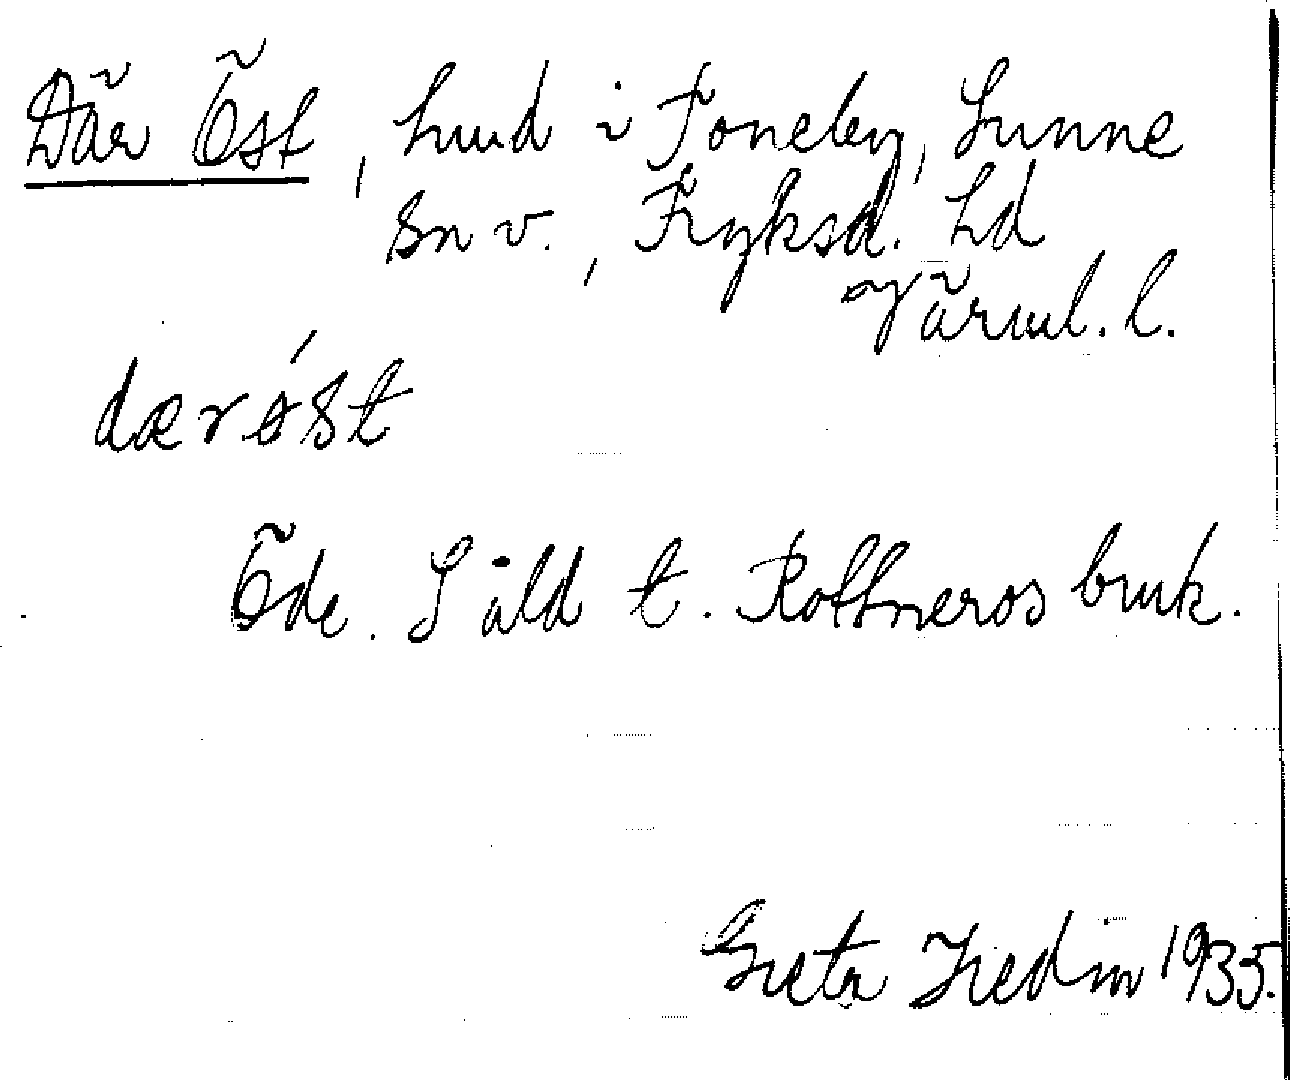 Där Öst, hmd i Toneby, Sunne
sn v., Fryksd. hd
Värml. l.
dærøst
Öde. Såld t. Rottneros bruk.
Greta Hedin 1935.